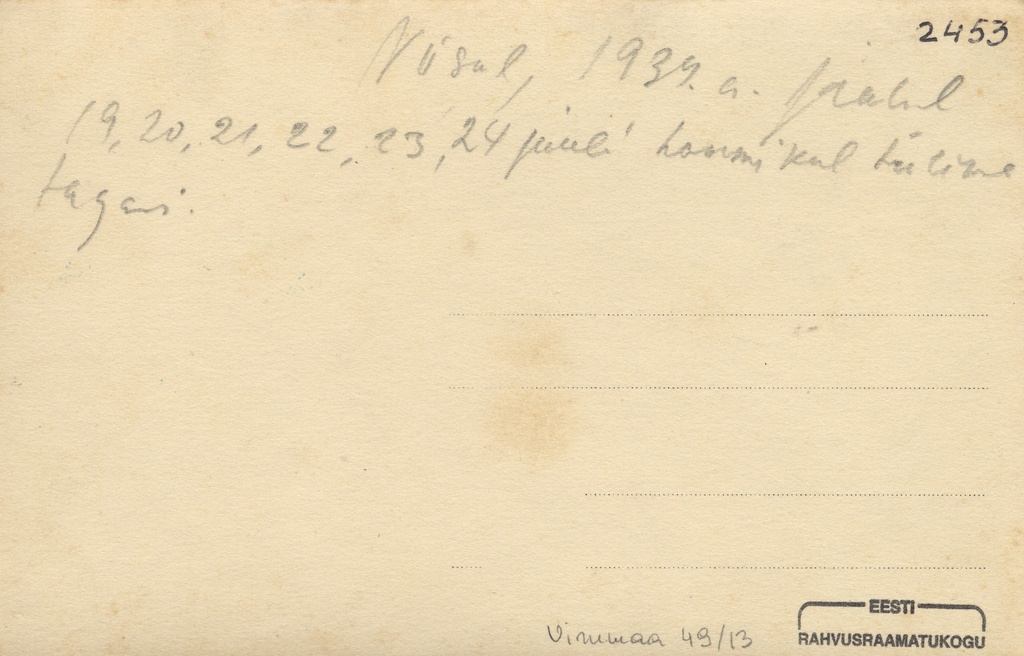 2453
Võsul, 1939. a.
19, 20, 21, 22, 23, 24 juuli hommikul tulime
tagasi.
Virumaa 49/13
EESTI
RAHVUSRAAMATUKOGU